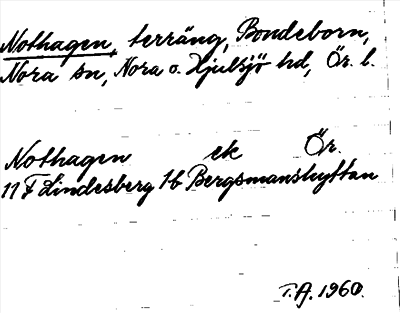 Nothagen, terräng, Bondeborn,
Nora sn, Nora o. Hjulsjö hd, Ör. l.
Nothagen ek Ör.
11 F Lindesberg 1b Bergsmanshyttan
T.A. 1960.